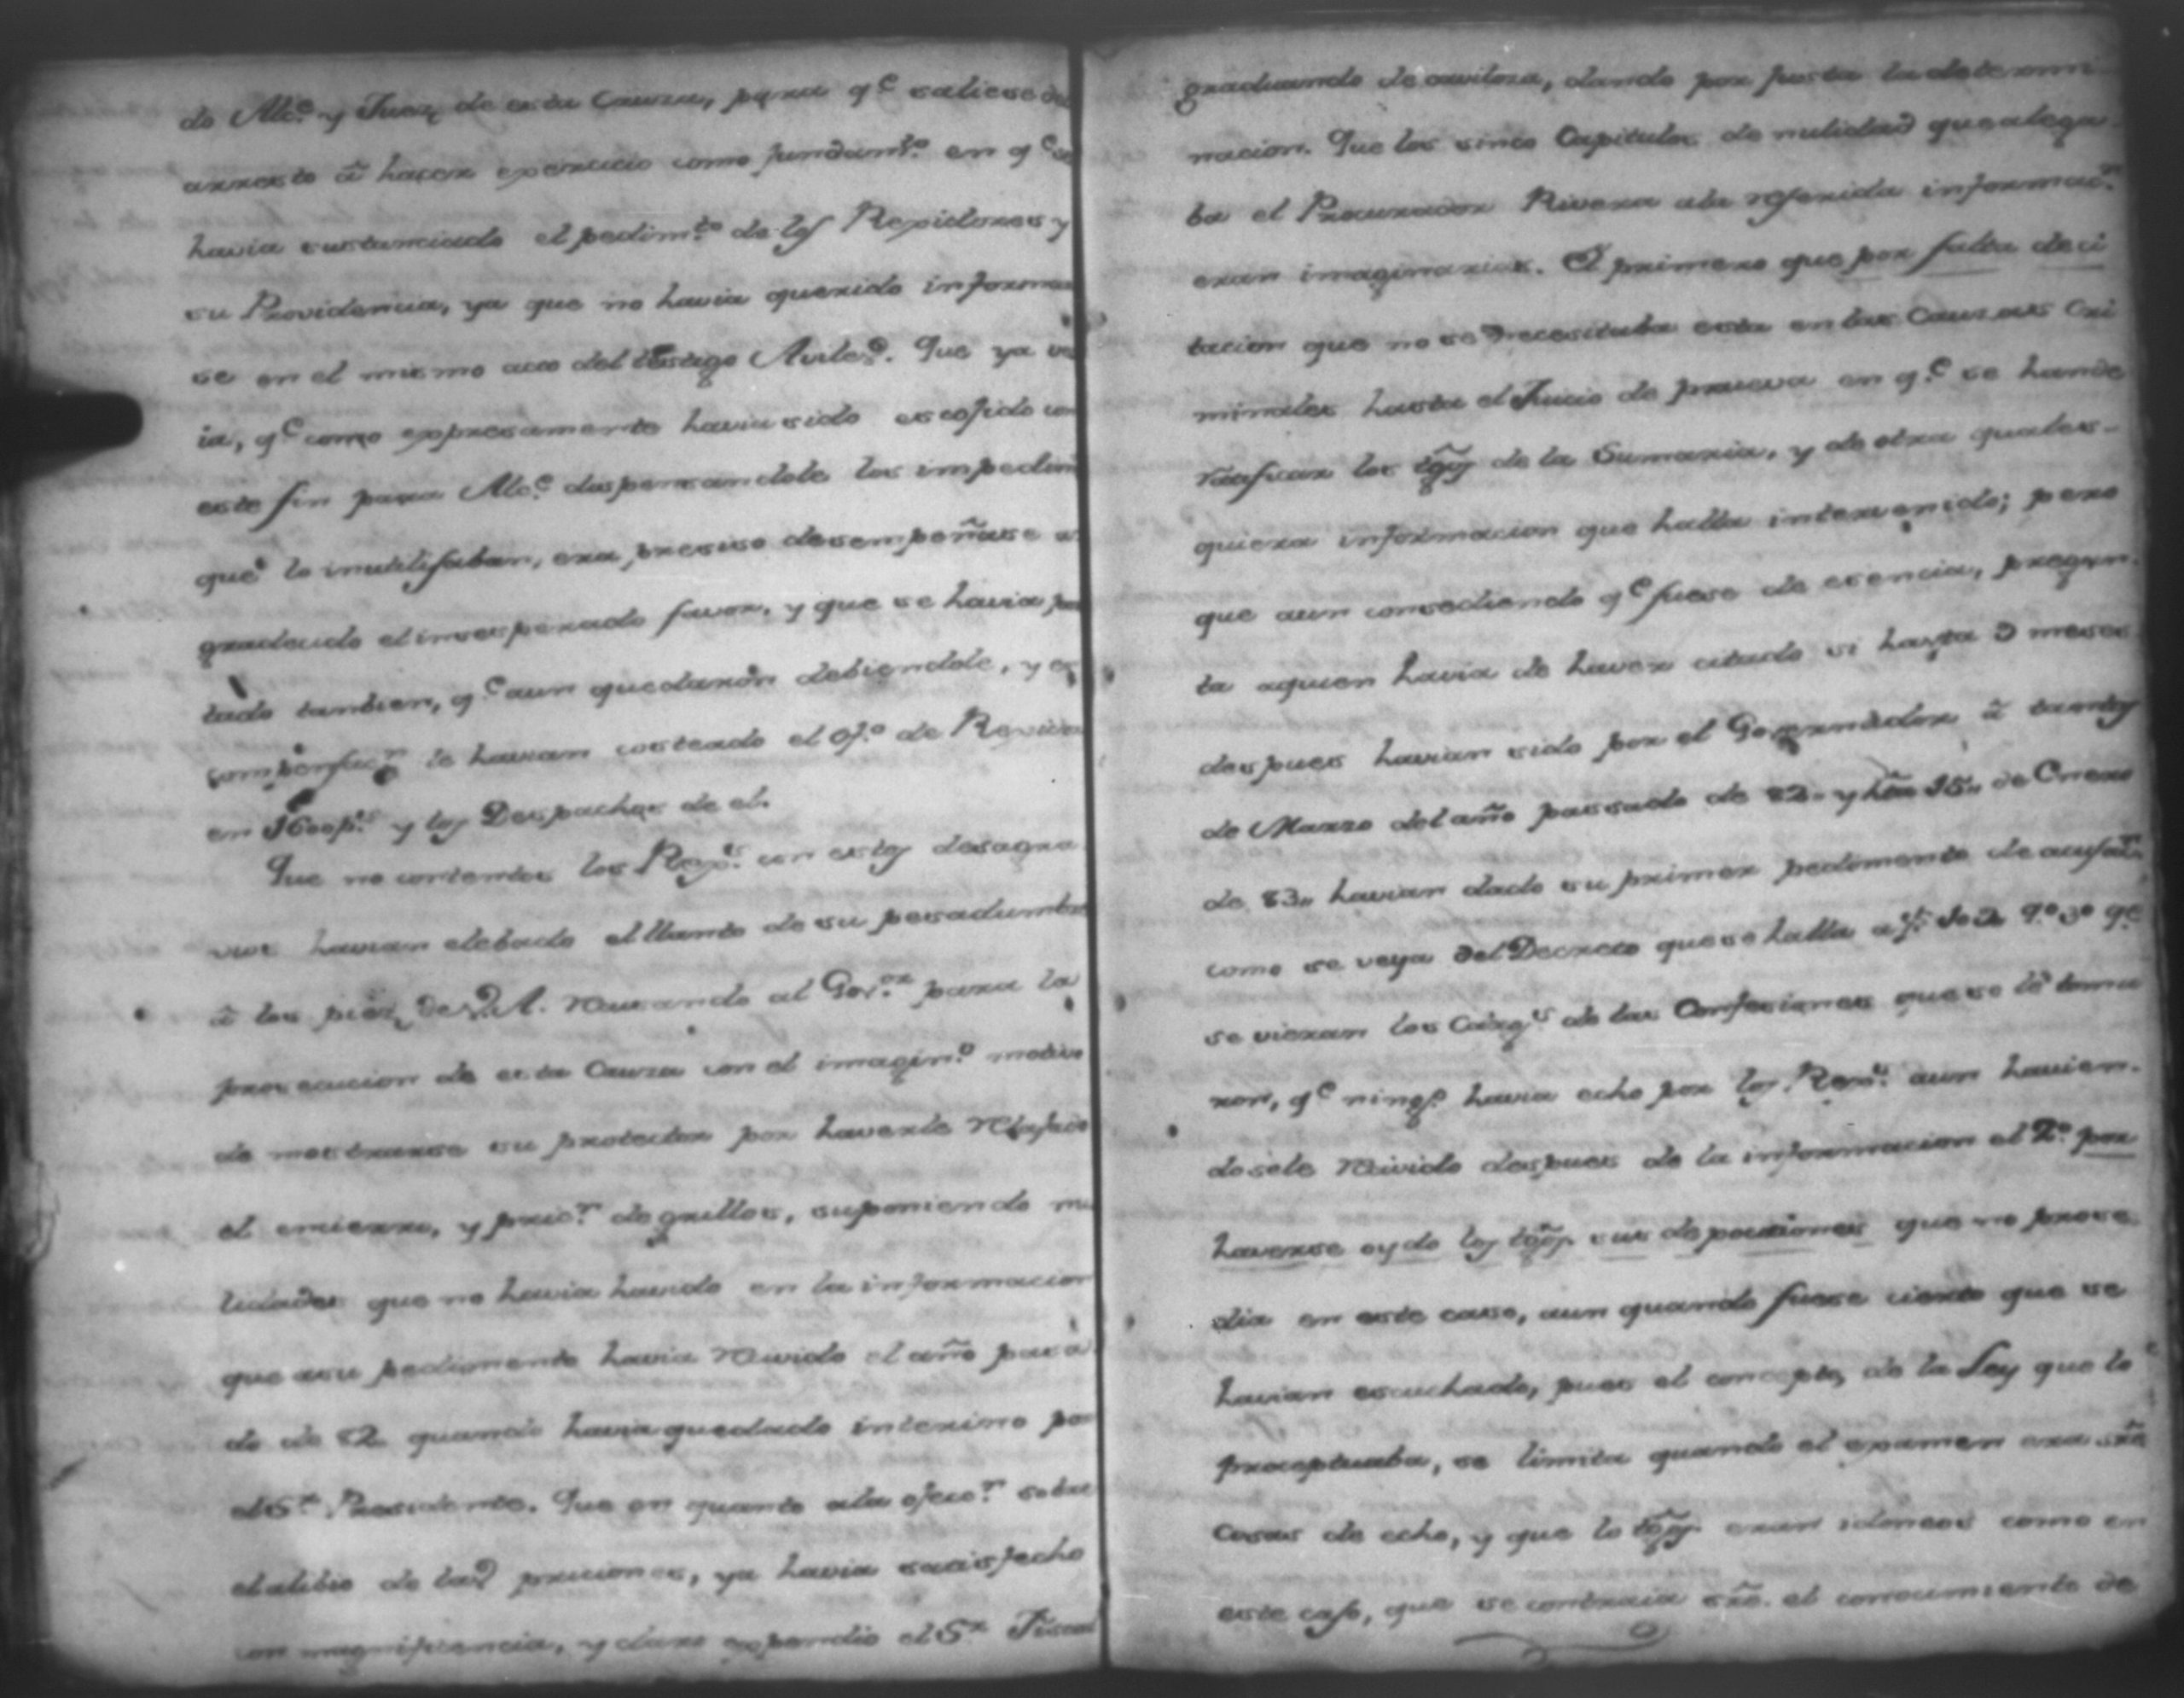 de Alc.e y Juez de esta Cauza, para q.e saliese del
arresto â hacer exercicio como fundam.to en q.e se
havia sustanciado el pedim.to de los Rexidores y
su Providencia, ya que no havia querido informar
se en el mismo acto del testigo Aviles. Que ya ve
ia, q.e como expresamente havia sido escojido con
este fin para Alc.e dispensandole los impedim
que lo inutilisaban, era preciso desempeñase a
gradecido el inesperado favor, y que se havia
tado tambien, q.e aun quedaron debiendole, y en
compensac.n le havian costeado el of.o de Rexidor
en p.s y los Despachos de el.
Que no contentos los Rex.s con estos desagra
vios havian elebado el llanto de su pesadumbre
â los piez de V.A. recusando al Gov.or para la
prosecucion de esta Cauza con el imagin.o motivo
de mostrarse su protector por haverle relajado
el encierro, y pric.n de grillos, suponiendo nu
lidades que no havia havido en la informacion
que a su pedimento havia recivido el año pasa
do de 82 quando havia quedado interino por
el S.r Presidente. Que en quanto a la ofens.n sobre
el alibio de las priciones, ya havia satisfecho
con magnificencia, y claro expendio el S.r Fiscal
graduando de caviloza, dando por justa la determi
nacion. Que los cinco Capitulos de nulidad que alega
ba el Procurador Rivera a la referida informac.n
eran imaginarios. El primero que por falta de ci
tacion que no se necesitaba esta en las Cauzas Cri
minales hasta el Juicio de prueva en q.e se han de
ratificar los tgõs de la Sumaria, y de otra quales-
quiera informacion que halla intervenido; pero
que aun consediendo q.e fuese de esencia, pregun-
ta aquien havia de haver citado si hasta 9 meses
despues havian sido por el Governador â
de Marzo del año passado de 82. y hta 15,, de Enero
de 83,, havian dado su primer pedimento de acusac.n
como se veya del Decreto que se halla a f.s q.e
se vieran los Carg.s de las Confesiones que se le toma
ron, q.e ning.o havia echo por los Rex.s aun havien-
dosele recivido despues de la informacion el 2.o por
haverse oydo los tgõs sus deposiciones que no proce
dia en este caso, aun quando fuese cierto que se
havian escuchado, pues el concepto de la Ley que lo
preceptuaba, se limita quando el examen era sre
cosas de echo, y que lo tgõs eran idoneos como en
este caso, que se contraia sre. el conocimiento de